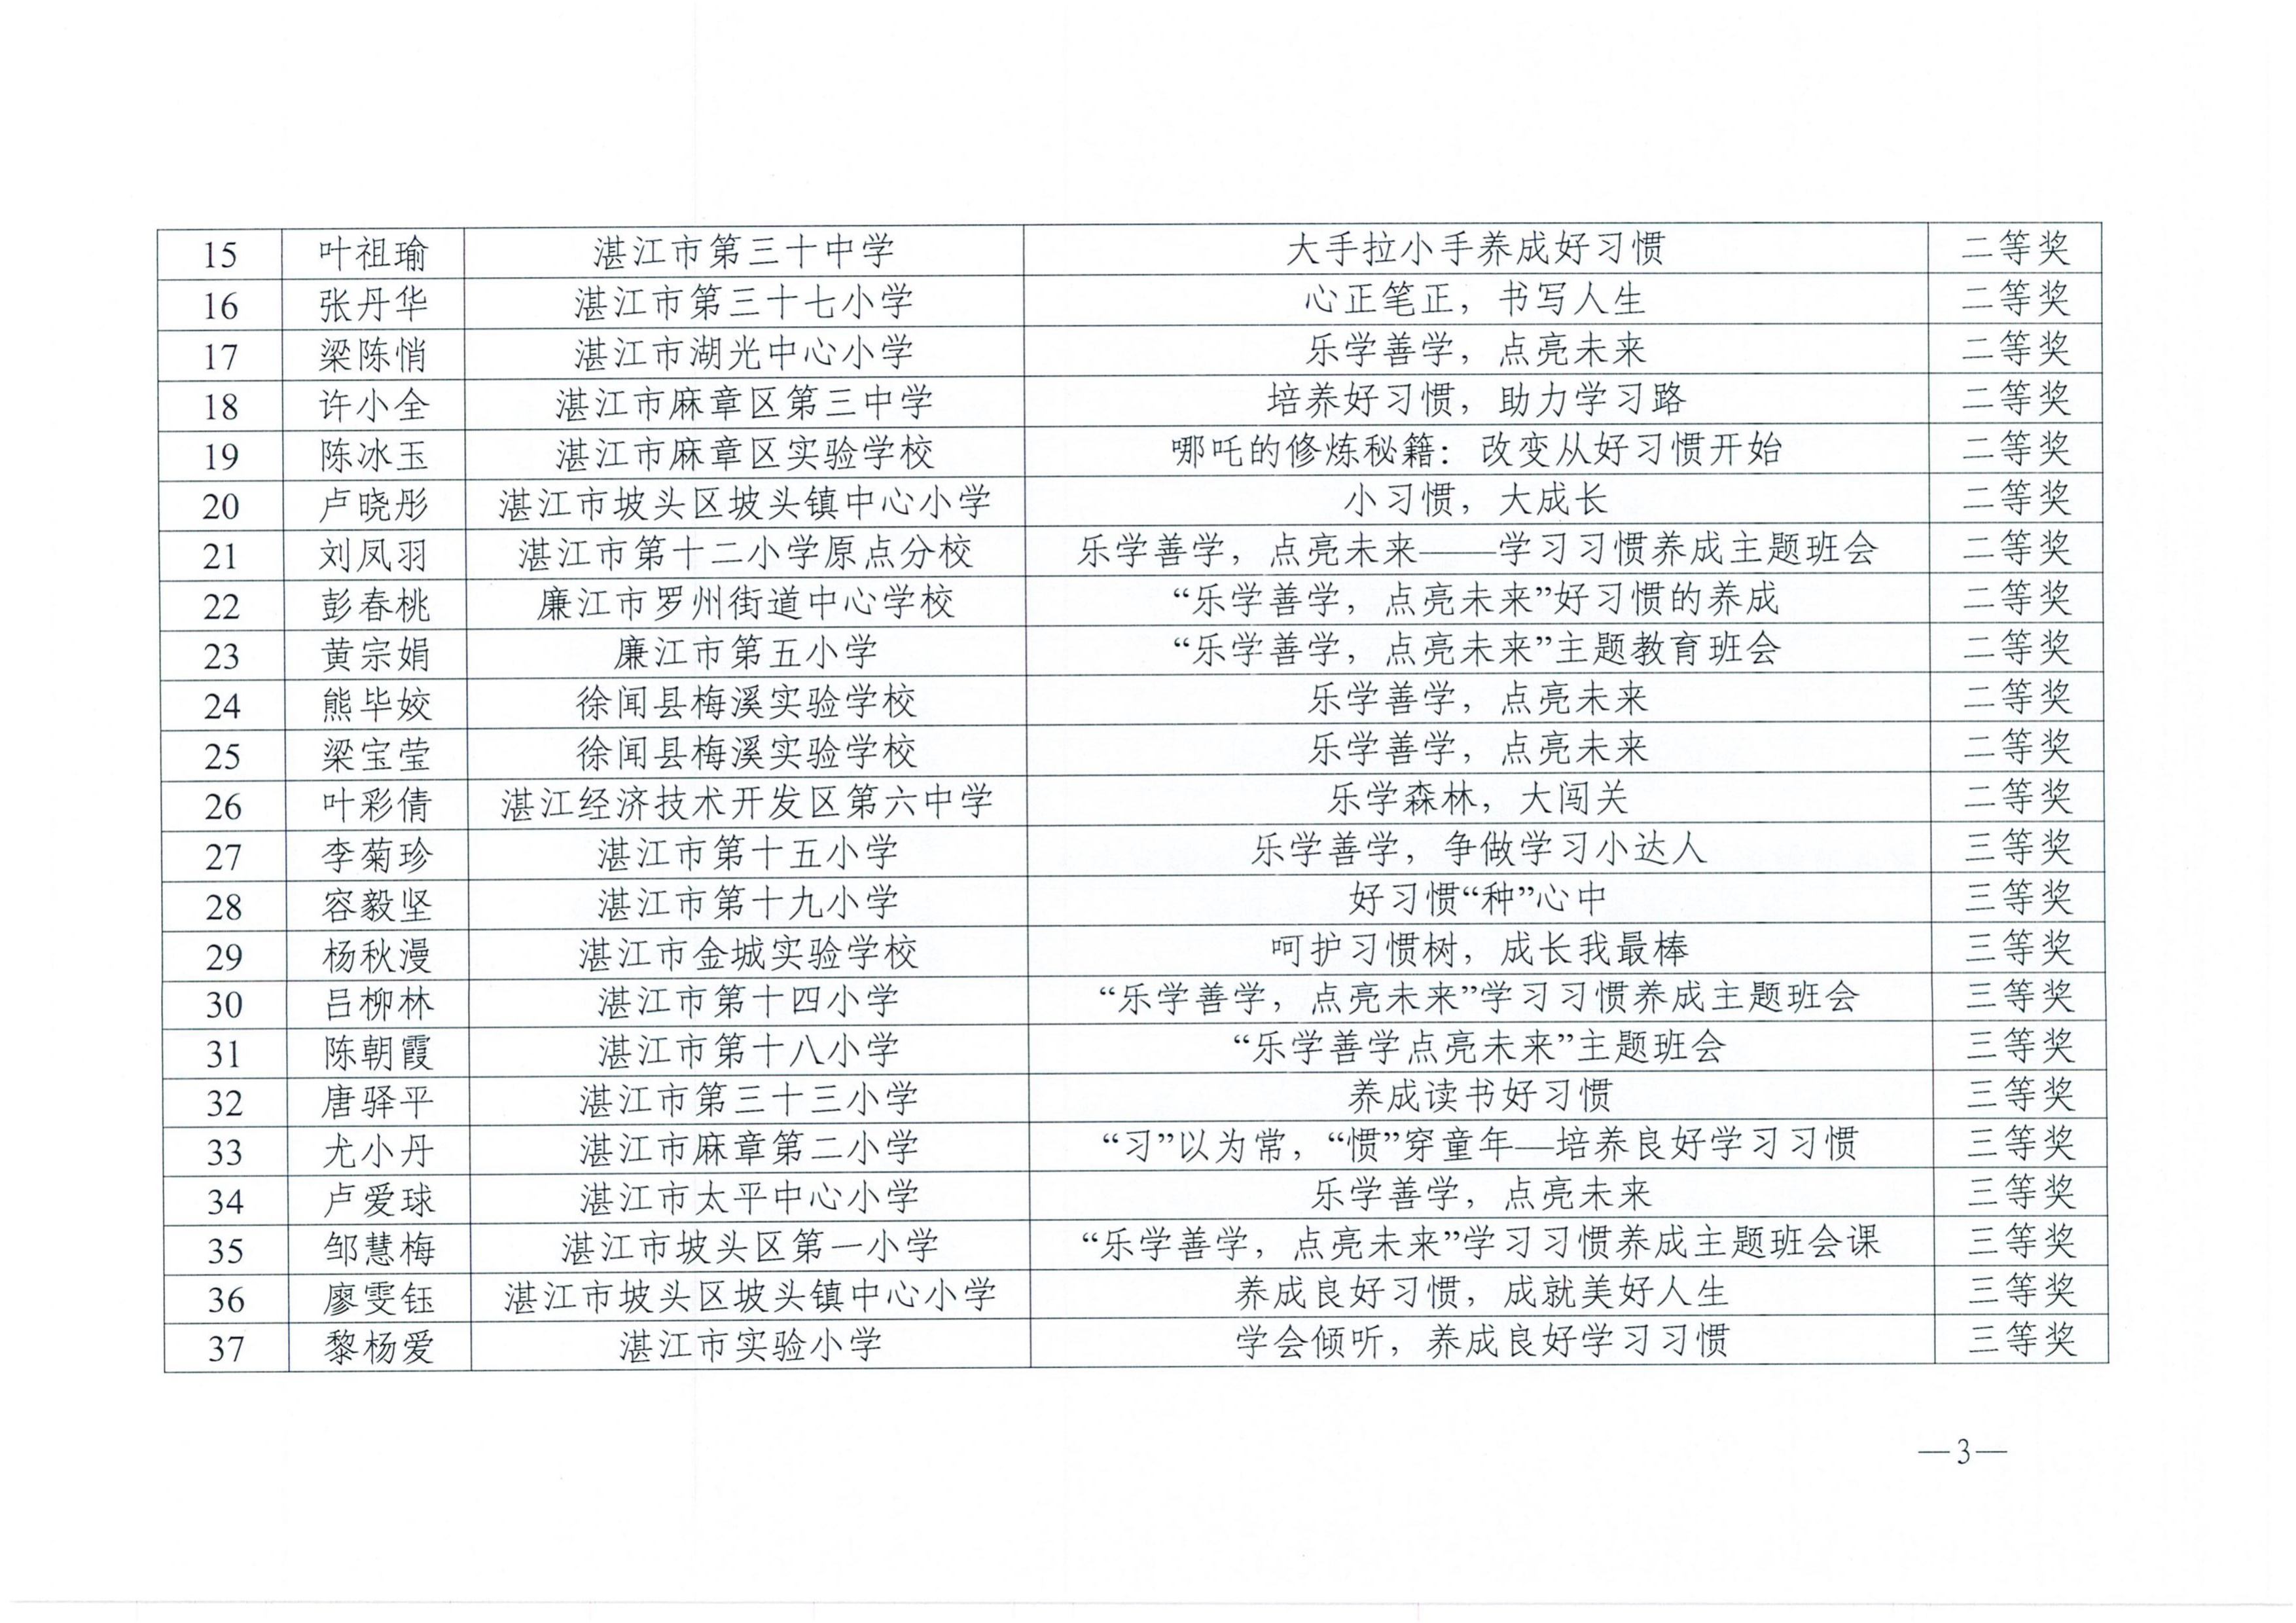 15 叶祖瑜 湛江市第三十中学 大手拉小手养成好习惯 二等奖
16 张丹华 湛江市第三十七小学 心正笔正，书写人生 二等奖
17 梁陈悄 湛江市湖光中心小学 乐学善学，点亮未来 二等奖
18 许小全 湛江市麻章区第三中学 培养好习惯，助力学习路 二等奖
19 陈冰玉 湛江市麻章区实验学校 哪吒的修炼秘籍：改变从好习惯开始 二等奖
20 卢晓彤 湛江市坡头区坡头镇中心小学 小习惯，大成长 二等奖
21 刘凤羽 湛江市第十二小学原点分校 乐学善学，点亮未来——学习习惯养成主题班会 二等奖
22 彭春桃 廉江市罗州街道中心学校 “乐学善学，点亮未来”好习惯的养成 二等奖
23 黄宗娟 廉江市第五小学 “乐学善学，点亮未来”主题教育班会 二等奖
24 熊毕姣 徐闻县梅溪实验学校 乐学善学，点亮未来 二等奖
25 梁宝莹 徐闻县梅溪实验学校 乐学善学，点亮未来 二等奖
26 叶彩倩 湛江经济技术开发区第六中学 乐学森林，大闯关 二等奖
27 李菊珍 湛江市第十五小学 乐学善学，争做学习小达人 三等奖
28 容毅坚 湛江市第十九小学 好习惯“种”心中 三等奖
29 杨秋漫 湛江市金城实验学校 呵护习惯树，成长我最棒 三等奖
30 吕柳林 湛江市第十四小学 “乐学善学，点亮未来”学习习惯养成主题班会 三等奖
31 陈朝霞 湛江市第十八小学 “乐学善学点亮未来”主题班会 三等奖
32 唐驿平 湛江市第三十三小学 养成读书好习惯 三等奖
33 尤小丹 湛江市麻章第二小学 “习”以为常，“惯”穿童年—培养良好学习习惯 三等奖
34 卢爱球 湛江市太平中心小学 乐学善学，点亮未来 三等奖
35 邹慧梅 湛江市坡头区第一小学 “乐学善学，点亮未来”学习习惯养成主题班会课 三等奖
36 廖雯钰 湛江市坡头区坡头镇中心小学 养成良好习惯，成就美好人生 三等奖
37 黎杨爱 湛江市实验小学 学会倾听，养成良好学习习惯 三等奖
—3—